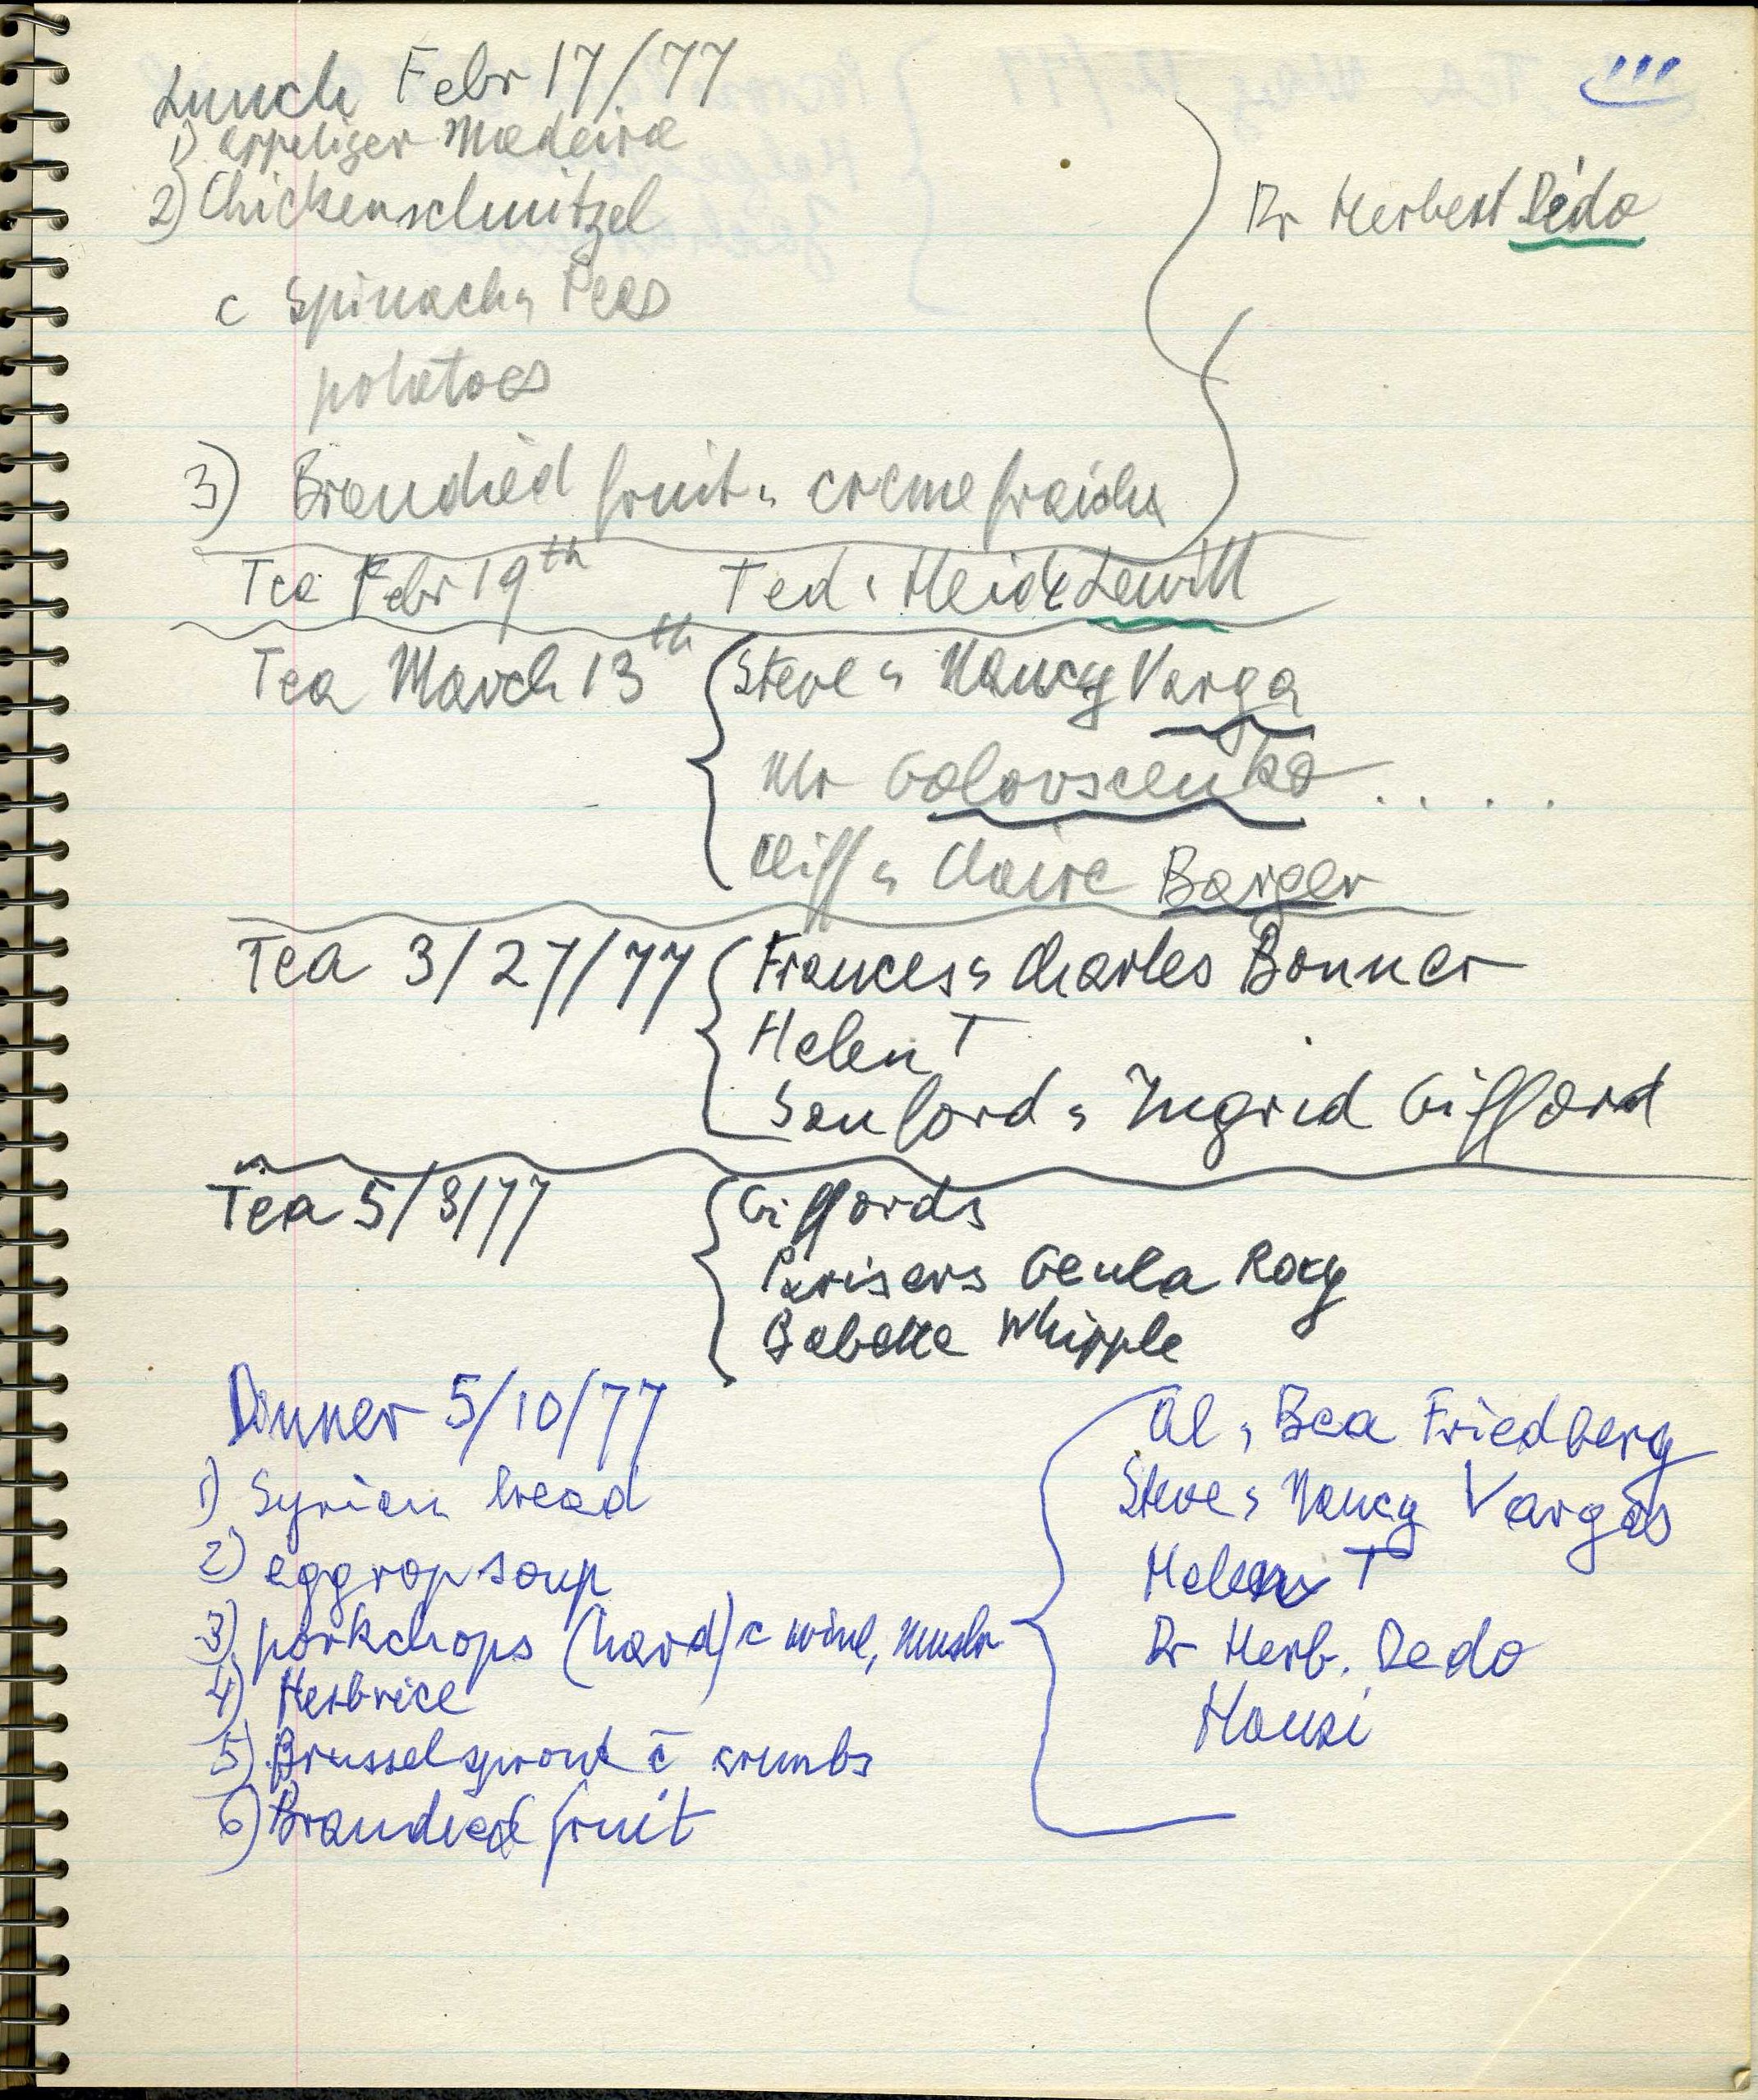 111
Lunch Febr 17/77
1) appetizer Madeira
2) Chickenschnitzel
c Spinach, Peas
potatoes
Dr Herbert Dedo
3) Brandied fruit, creme fraiche
Tea Febr 19th Ted, Heide Lewitt
Tea March 13th Steve, Nancy Varga
Mr Golovscenko ....
Cliff, Claire Barger
Tea 3/27/77 Frances, Charles Bonner
Helen T
Sanford, Ingrid Gifford
Tea 5/3/77 Giffords
Parisers Geula Roxy
Babette Whipple
Dinner 5/10/77
1) Syrian bread
2) eggropsoup
3) porkchops (hard) c wine, mushr
4) Herbrice
5) Brusselsprout c crumbs
6) Brandied fruit
Al, Bea Friedberg
Steve, Nancy Vargas
Helen T
Dr Herb. Dedo
Hansi